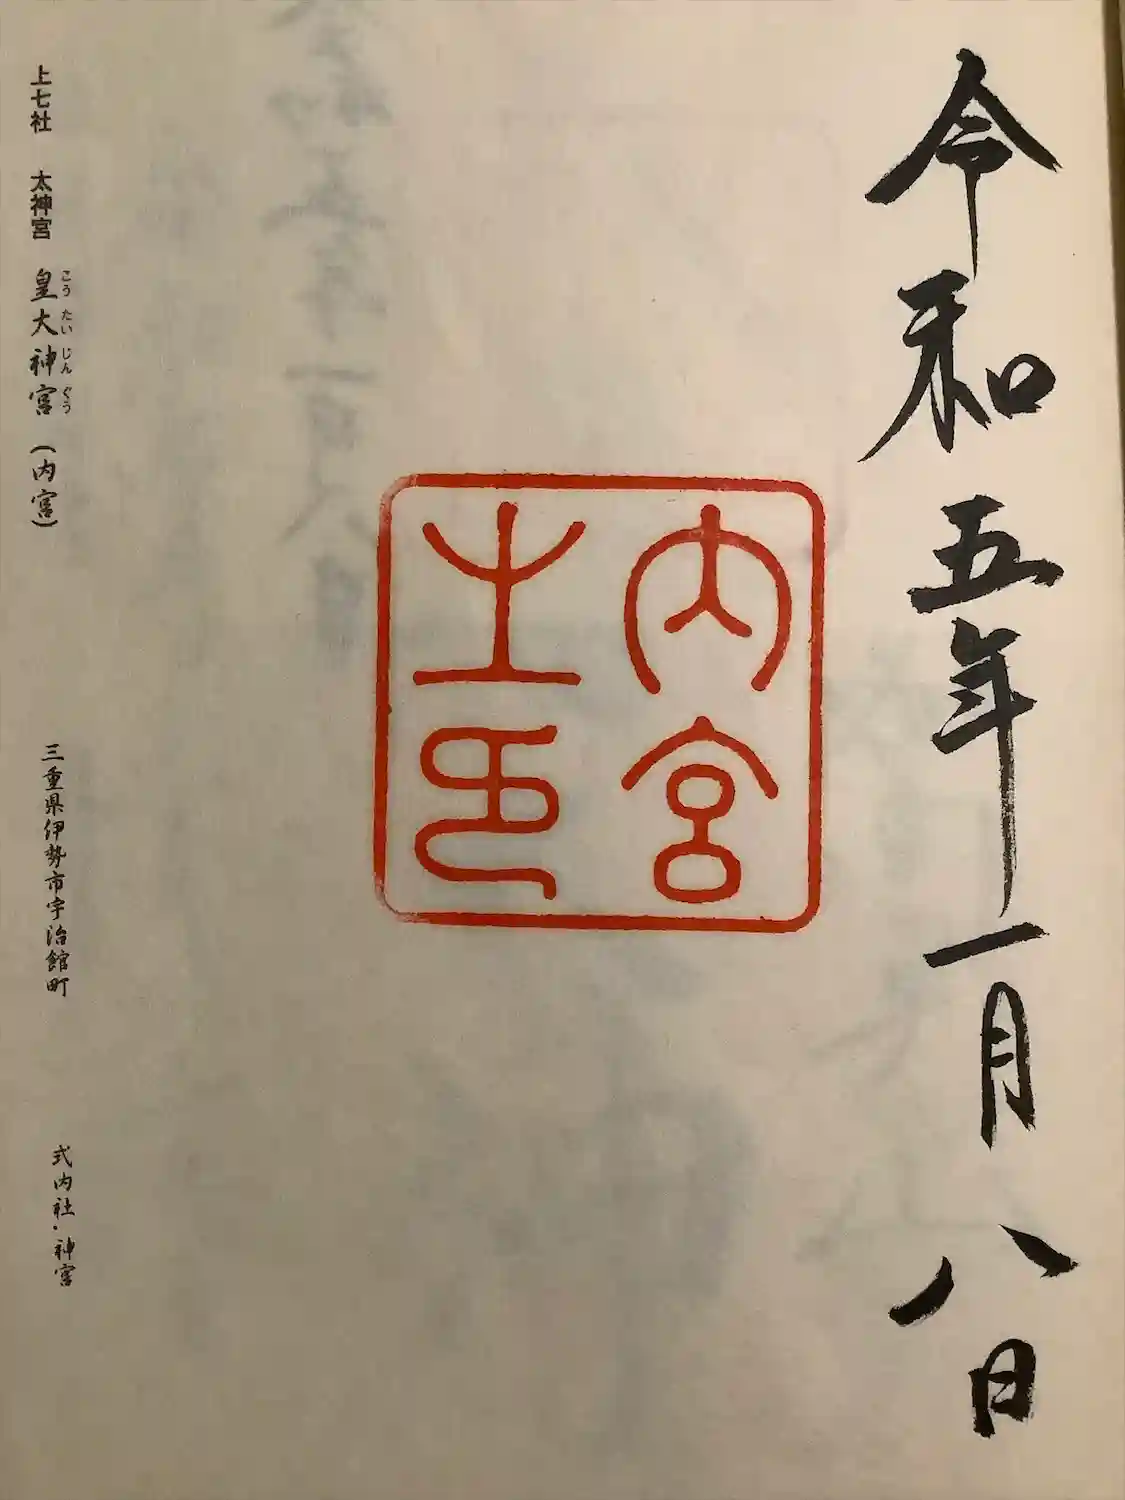 令和五年一月八日
内宮
之印
上七社 太神宮 皇大神宮(内宮)
こうたいじんぐう
三重県伊勢市宇治館町
式内社・神宮